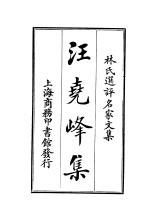 林氏選評名家文集
汪堯峰集
上海商務印書館發行